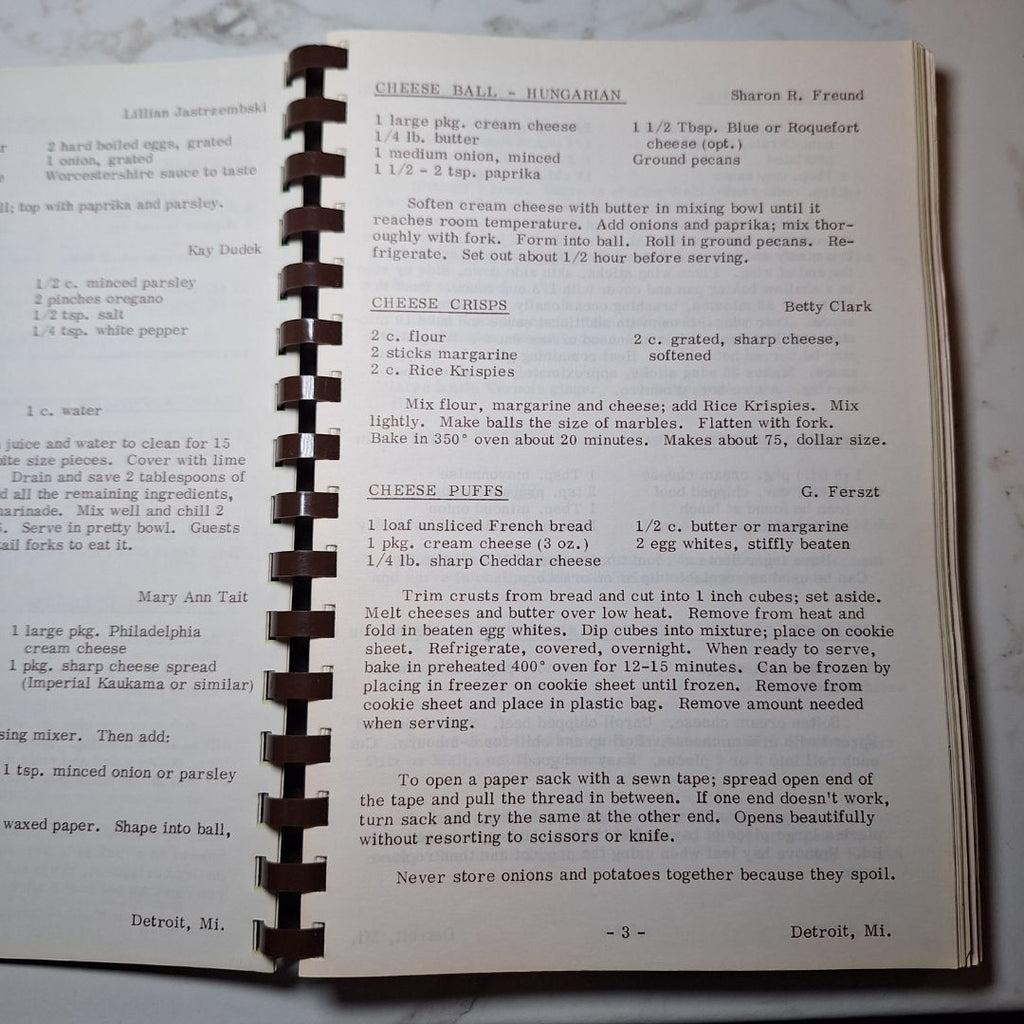 Lillian Jastrzembski
2 hard boiled eggs, grated
1 onion, grated
Worcestershire sauce to taste
top with paprika and parsley.
Kay Dudek
1/2 c. minced parsley
2 pinches oregano
1/2 tsp. salt
1/4 tsp. white pepper
1 c. water
juice and water to clean for 15
size pieces. Cover with lime
Drain and save 2 tablespoons of
all the remaining ingredients,
Mix well and chill 2
Serve in pretty bowl. Guests
forks to eat it.
Mary Ann Tait
1 large pkg. Philadelphia
cream cheese
1 pkg. sharp cheese spread
(Imperial Kaukama or similar)
mixer. Then add:
1 tsp. minced onion or parsley
waxed paper. Shape into ball,
Detroit, Mi.
CHEESE BALL - HUNGARIAN Sharon R. Freund
1 large pkg. cream cheese
1/4 lb. butter
1 medium onion, minced
1 1/2 - 2 tsp. paprika
1 1/2 Tbsp. Blue or Roquefort
cheese (opt.)
Ground pecans
Soften cream cheese with butter in mixing bowl until it
reaches room temperature. Add onions and paprika; mix thor-
oughly with fork. Form into ball. Roll in ground pecans. Re-
frigerate. Set out about 1/2 hour before serving.
CHEESE CRISPS Betty Clark
2 c. flour
2 sticks margarine
2 c. Rice Krispies
2 c. grated, sharp cheese,
softened
Mix flour, margarine and cheese; add Rice Krispies. Mix
lightly. Make balls the size of marbles. Flatten with fork.
Bake in 350° oven about 20 minutes. Makes about 75, dollar size.
CHEESE PUFFS G. Ferszt
1 loaf unsliced French bread
1 pkg. cream cheese (3 oz.)
1/4 lb. sharp Cheddar cheese
1/2 c. butter or margarine
2 egg whites, stiffly beaten
Trim crusts from bread and cut into 1 inch cubes; set aside.
Melt cheeses and butter over low heat. Remove from heat and
fold in beaten egg whites. Dip cubes into mixture; place on cookie
sheet. Refrigerate, covered, overnight. When ready to serve,
bake in preheated 400° oven for 12-15 minutes. Can be frozen by
placing in freezer on cookie sheet until frozen. Remove from
cookie sheet and place in plastic bag. Remove amount needed
when serving.
To open a paper sack with a sewn tape; spread open end of
the tape and pull the thread in between. If one end doesn't work,
turn sack and try the same at the other end. Opens beautifully
without resorting to scissors or knife.
Never store onions and potatoes together because they spoil.
- 3 -
Detroit, Mi.